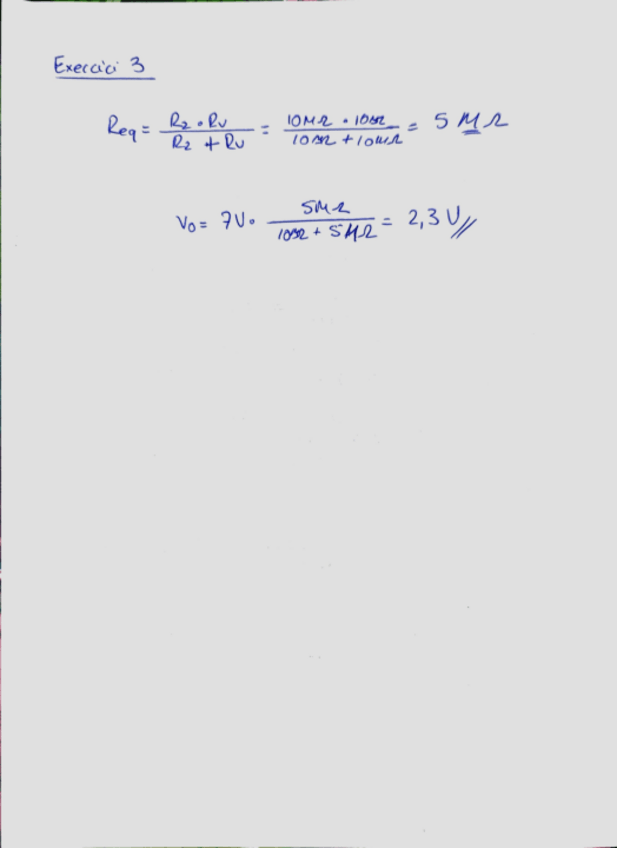 Exercici 3
Req = R2 · RV / R2 + RV = 10MΩ · 10MΩ / 10MΩ + 10MΩ = 5 MΩ
V0 = 7V · 5MΩ / 10MΩ + 5MΩ = 2,3 V//